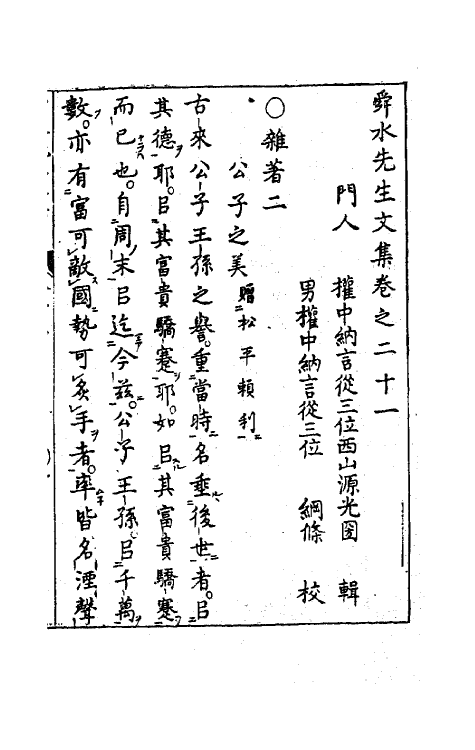 舜水先生文集卷之二十一
門人 權中納言從三位西山源光圀 輯
男權中納言從三位 綱條 校
○雜著二
公子之美 贈松平賴利
古來公子王孫之譽。重當時名垂後世者。㠯
其德耶。㠯其富貴驕蹇耶。如㠯其富貴驕蹇
而已也。自周末㠯迄今茲。公子王孫㠯千萬
數。亦有富可敵國勢可炙手者。率皆名湮聲